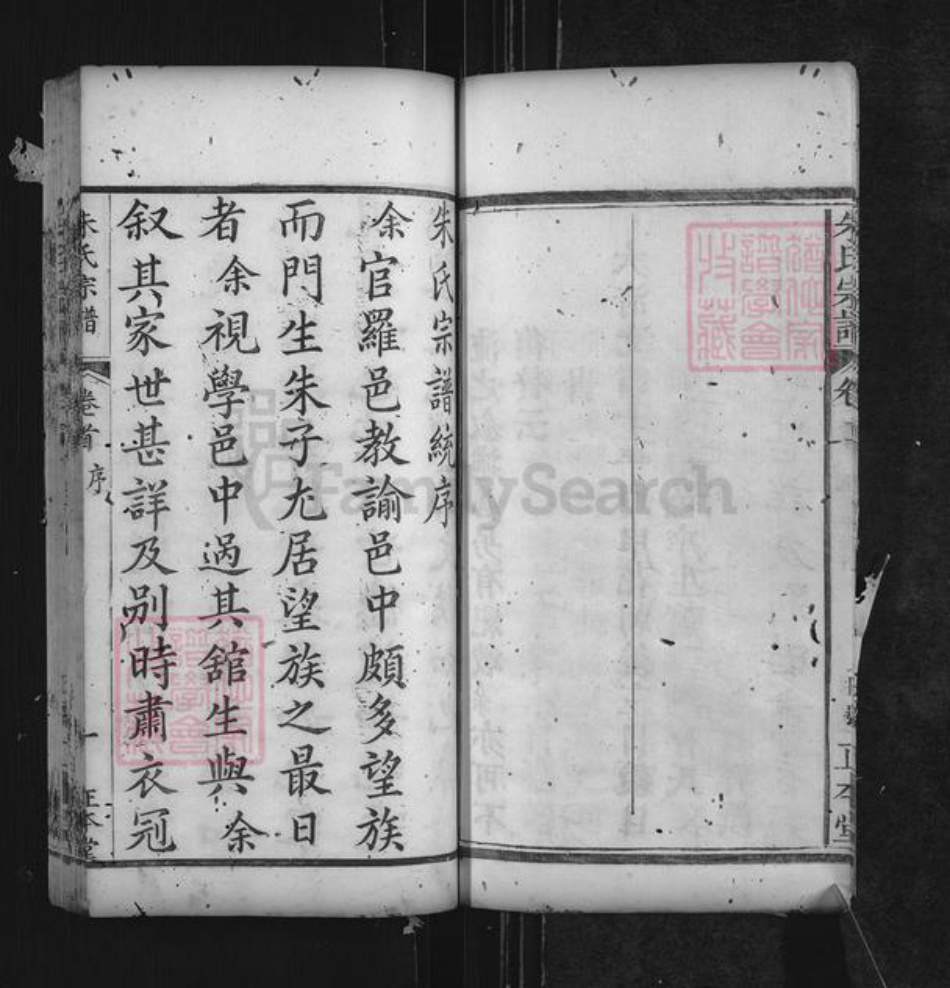 朱氏宗譜
卷首
正本堂
朱氏宗譜統序
余官羅邑教諭邑中頗多望族
而門生朱子尢居望族之最日
者余視學邑中過其舘生與余
叙其家世甚詳及别時肅衣冠
朱氏宗譜
卷首
序
一
正本堂
FamilySearch